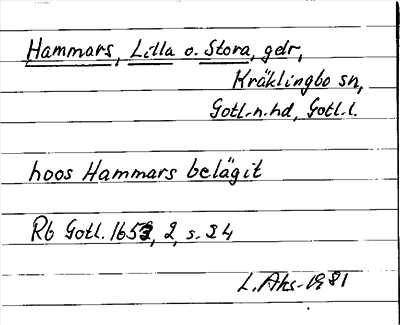 Hammars, Lilla o. Stora, gdr,
Kräklingbo sn,
Gotl.n.hd, Gotl.l.
hoos Hammars belägit
Rb Gotl. 1652, 2, s. 34
L.Aks-1981